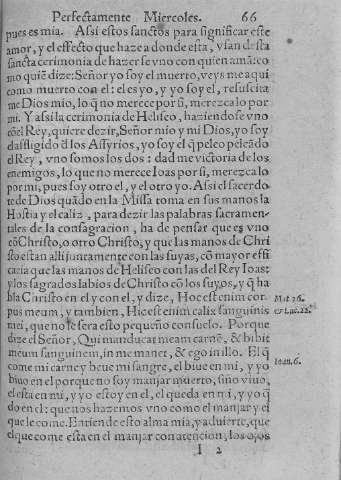 Perfectamente Miercoles. 66
pues es mia. Assi estos sanctos para significar este
amor, y el effecto que haze a donde esta, vsan desta
sancta cerimonia de hazerse vno con quien amã: co
mo quiẽ dize: Señor yo soy el muerto, veys me aqui
como muerto con el: el es yo, y yo soy el, resuscita
me Dios mio, lo q̃ no merece por si, merezca lo por
mi. Y assi la cerimonia de Heliseo, haziendose vno
cõ el Rey, quiere dezir, Señor mio y mi Dios, yo soy
el affligido d̃ los Assyrios, yo soy el q̃ peleo peleãdo
el Rey, vno somos los dos: dad me victoria de los
enemigos, lo que no merece Ioas por si, merezca lo
por mi, pues soy otro el, y el otro yo. Assi el sacerdo
te de Dios quãdo en la Missa toma en sus manos la
Hostia y el caliz, para dezir las palabras sacramen-
tales de la consagracion, ha de pensar que es vno
cõ Christo, o otro Christo, y que las manos de Chri
sto estan alli juntamente con las suyas, cõ mayor effi
cacia que las manos de Heliseo con las del Rey Ioas:
y los sagrados labios de Christo cõ los suyos, y q̃ ha
bla Christo en el y con el, y dize, Hoc est enim cor- Mat 26.
pus meum, y tambien, Hic est enim calix sanguinis & Luc. 22.
mei, que no le sera esto pequeño consuelo. Porque
dize el Señor, Qui manducat meam carnẽ, & bibit
meum sanguinem, in me manet, & ego in illo. El q̃
come mi carne y beue mi sangre, el biue en mi, y yo Ioan. 6.
biuo en el porque no soy manjar muerto, sino viuo,
el esta en mi, y yo estoy en el, el queda en mi, y yo q̃
do en el: que nos hazemos vno como el manjar y el
que le come. Entiende esto alma mia, y aduierte, que
el que come esta en el manjar con atencion, los ojos
I 2